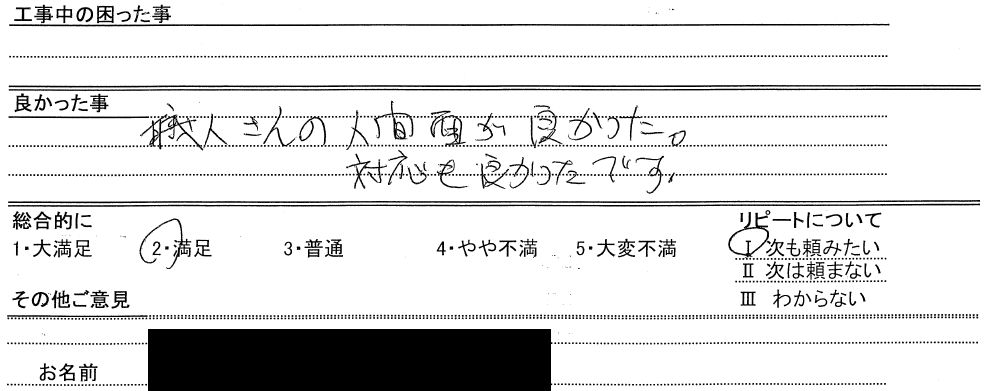 工事中の困った事
良かった事
職人さんの人間面が良かった。
対応も良かったです。
総合的に
1・大満足 2・満足 3・普通 4・やや不満 5・大変不満
リピートについて
Ⅰ 次も頼みたい
Ⅱ 次は頼まない
Ⅲ わからない
その他ご意見
お名前